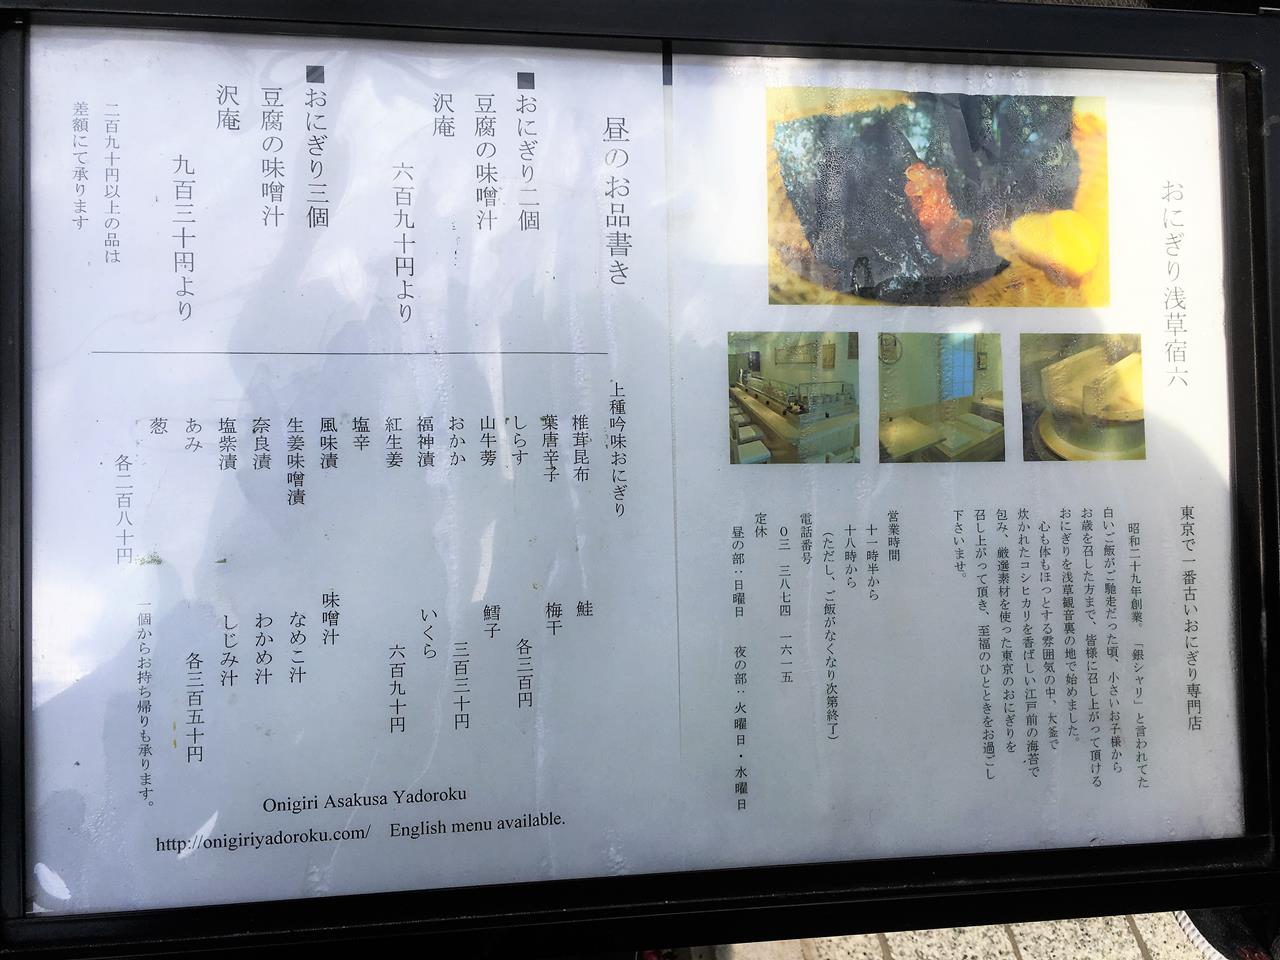 おにぎり浅草宿六
東京で一番古いおにぎり専門店
昭和二十九年創業。「銀シャリ」と言われてた
白いご飯がご馳走だった頃、小さいお子様から
お歳を召した方まで、皆様に召し上がって頂ける
おにぎりを浅草観音裏の地で始めました。
心も体もほっとする雰囲気の中、大釜で
炊かれたコシヒカリを香ばしい江戸前の海苔で
包み、厳選素材を使った東京のおにぎりを
召し上がって頂き、至福のひとときをお過ごし
下さいませ。
営業時間
十一時半から
十八時から
（ただし、ご飯がなくなり次第終了）
電話番号
０三 三八七四 一六一五
定休
昼の部：日曜日 夜の部：火曜日・水曜日
昼のお品書き
■おにぎり二個
豆腐の味噌汁
沢庵
六百九十円より
■おにぎり三個
豆腐の味噌汁
沢庵
九百三十円より
二百九十円以上の品は
差額にて承ります
上種吟味おにぎり
椎茸昆布
葉唐辛子
しらす
山牛蒡
おかか
福神漬
紅生姜
塩辛
風味漬
生姜味噌漬
奈良漬
塩紫漬
あみ
葱
各二百八十円
鮭
梅干
各三百円
鱈子
三百三十円
いくら
六百九十円
味噌汁
なめこ汁
わかめ汁
しじみ汁
各三百五十円
一個からお持ち帰りも承ります。
Onigiri Asakusa Yadoroku
http://onigiriyadoroku.com/ English menu available.